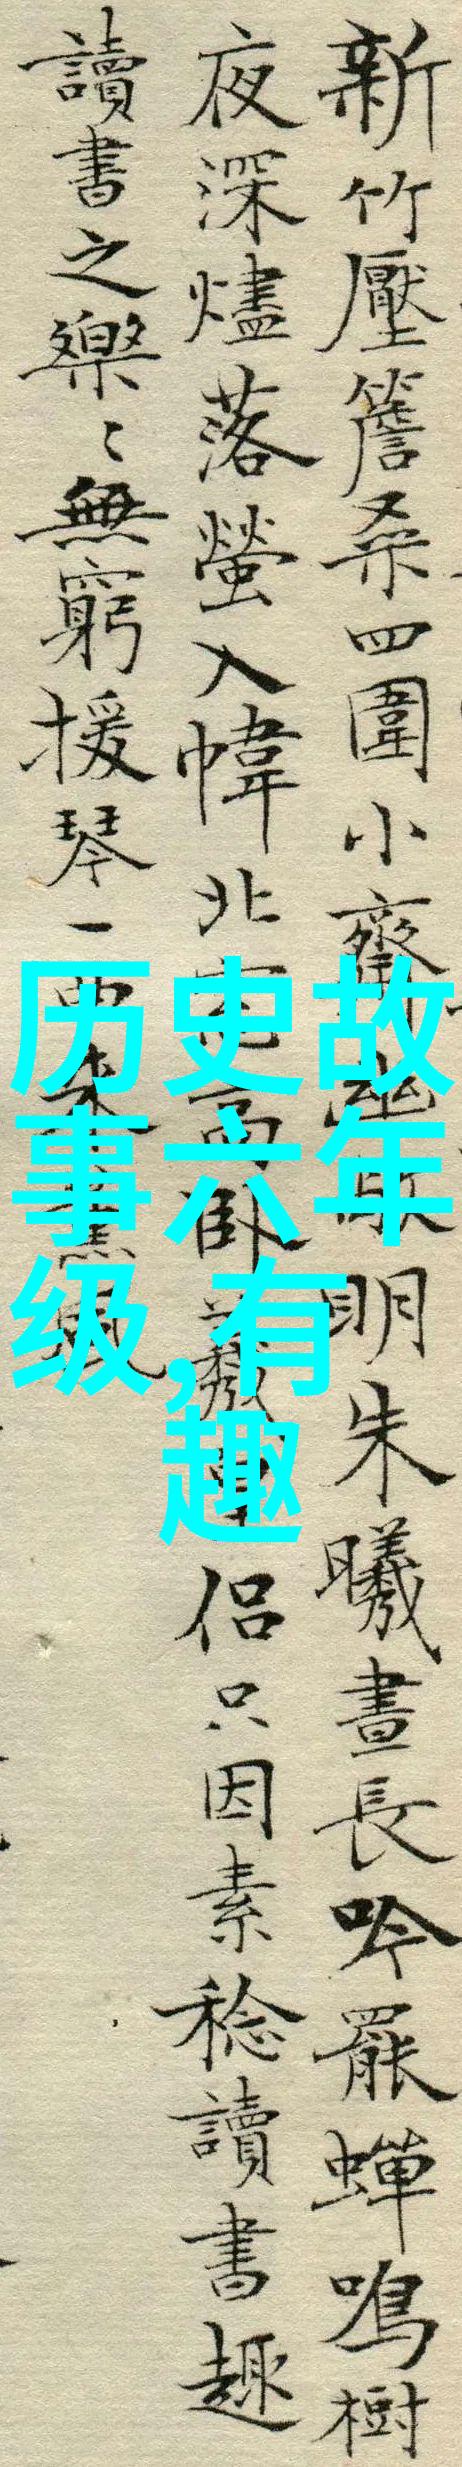 新竹壓簷桑四圍小齋幽敞明朱曦晝長吟罷蟬鳴樹
夜深燼落螢入幃北窓高卧羲皇侶只因素稔讀書趣
讀書之樂〻無窮援琴一曲來薰風
历史故
事六年
级,有
趣